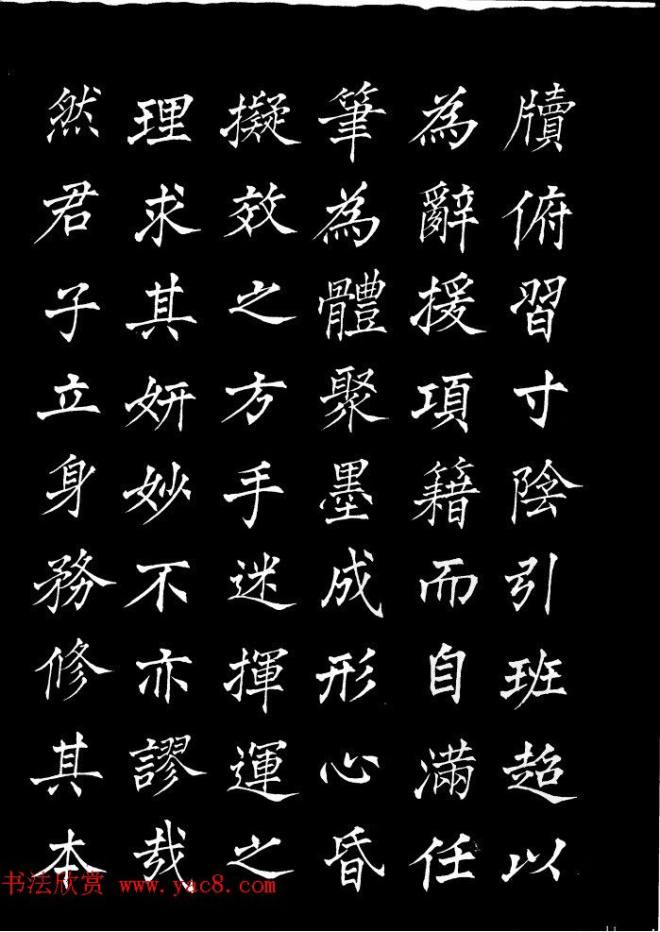 牘俯習寸陰引班超以
為辭援項籍而自滿任
筆為體聚墨成形心昏
擬效之方手迷揮運之
理求其妍妙不亦謬哉
然君子立身務修其本
书法欣赏 www.yac8.com